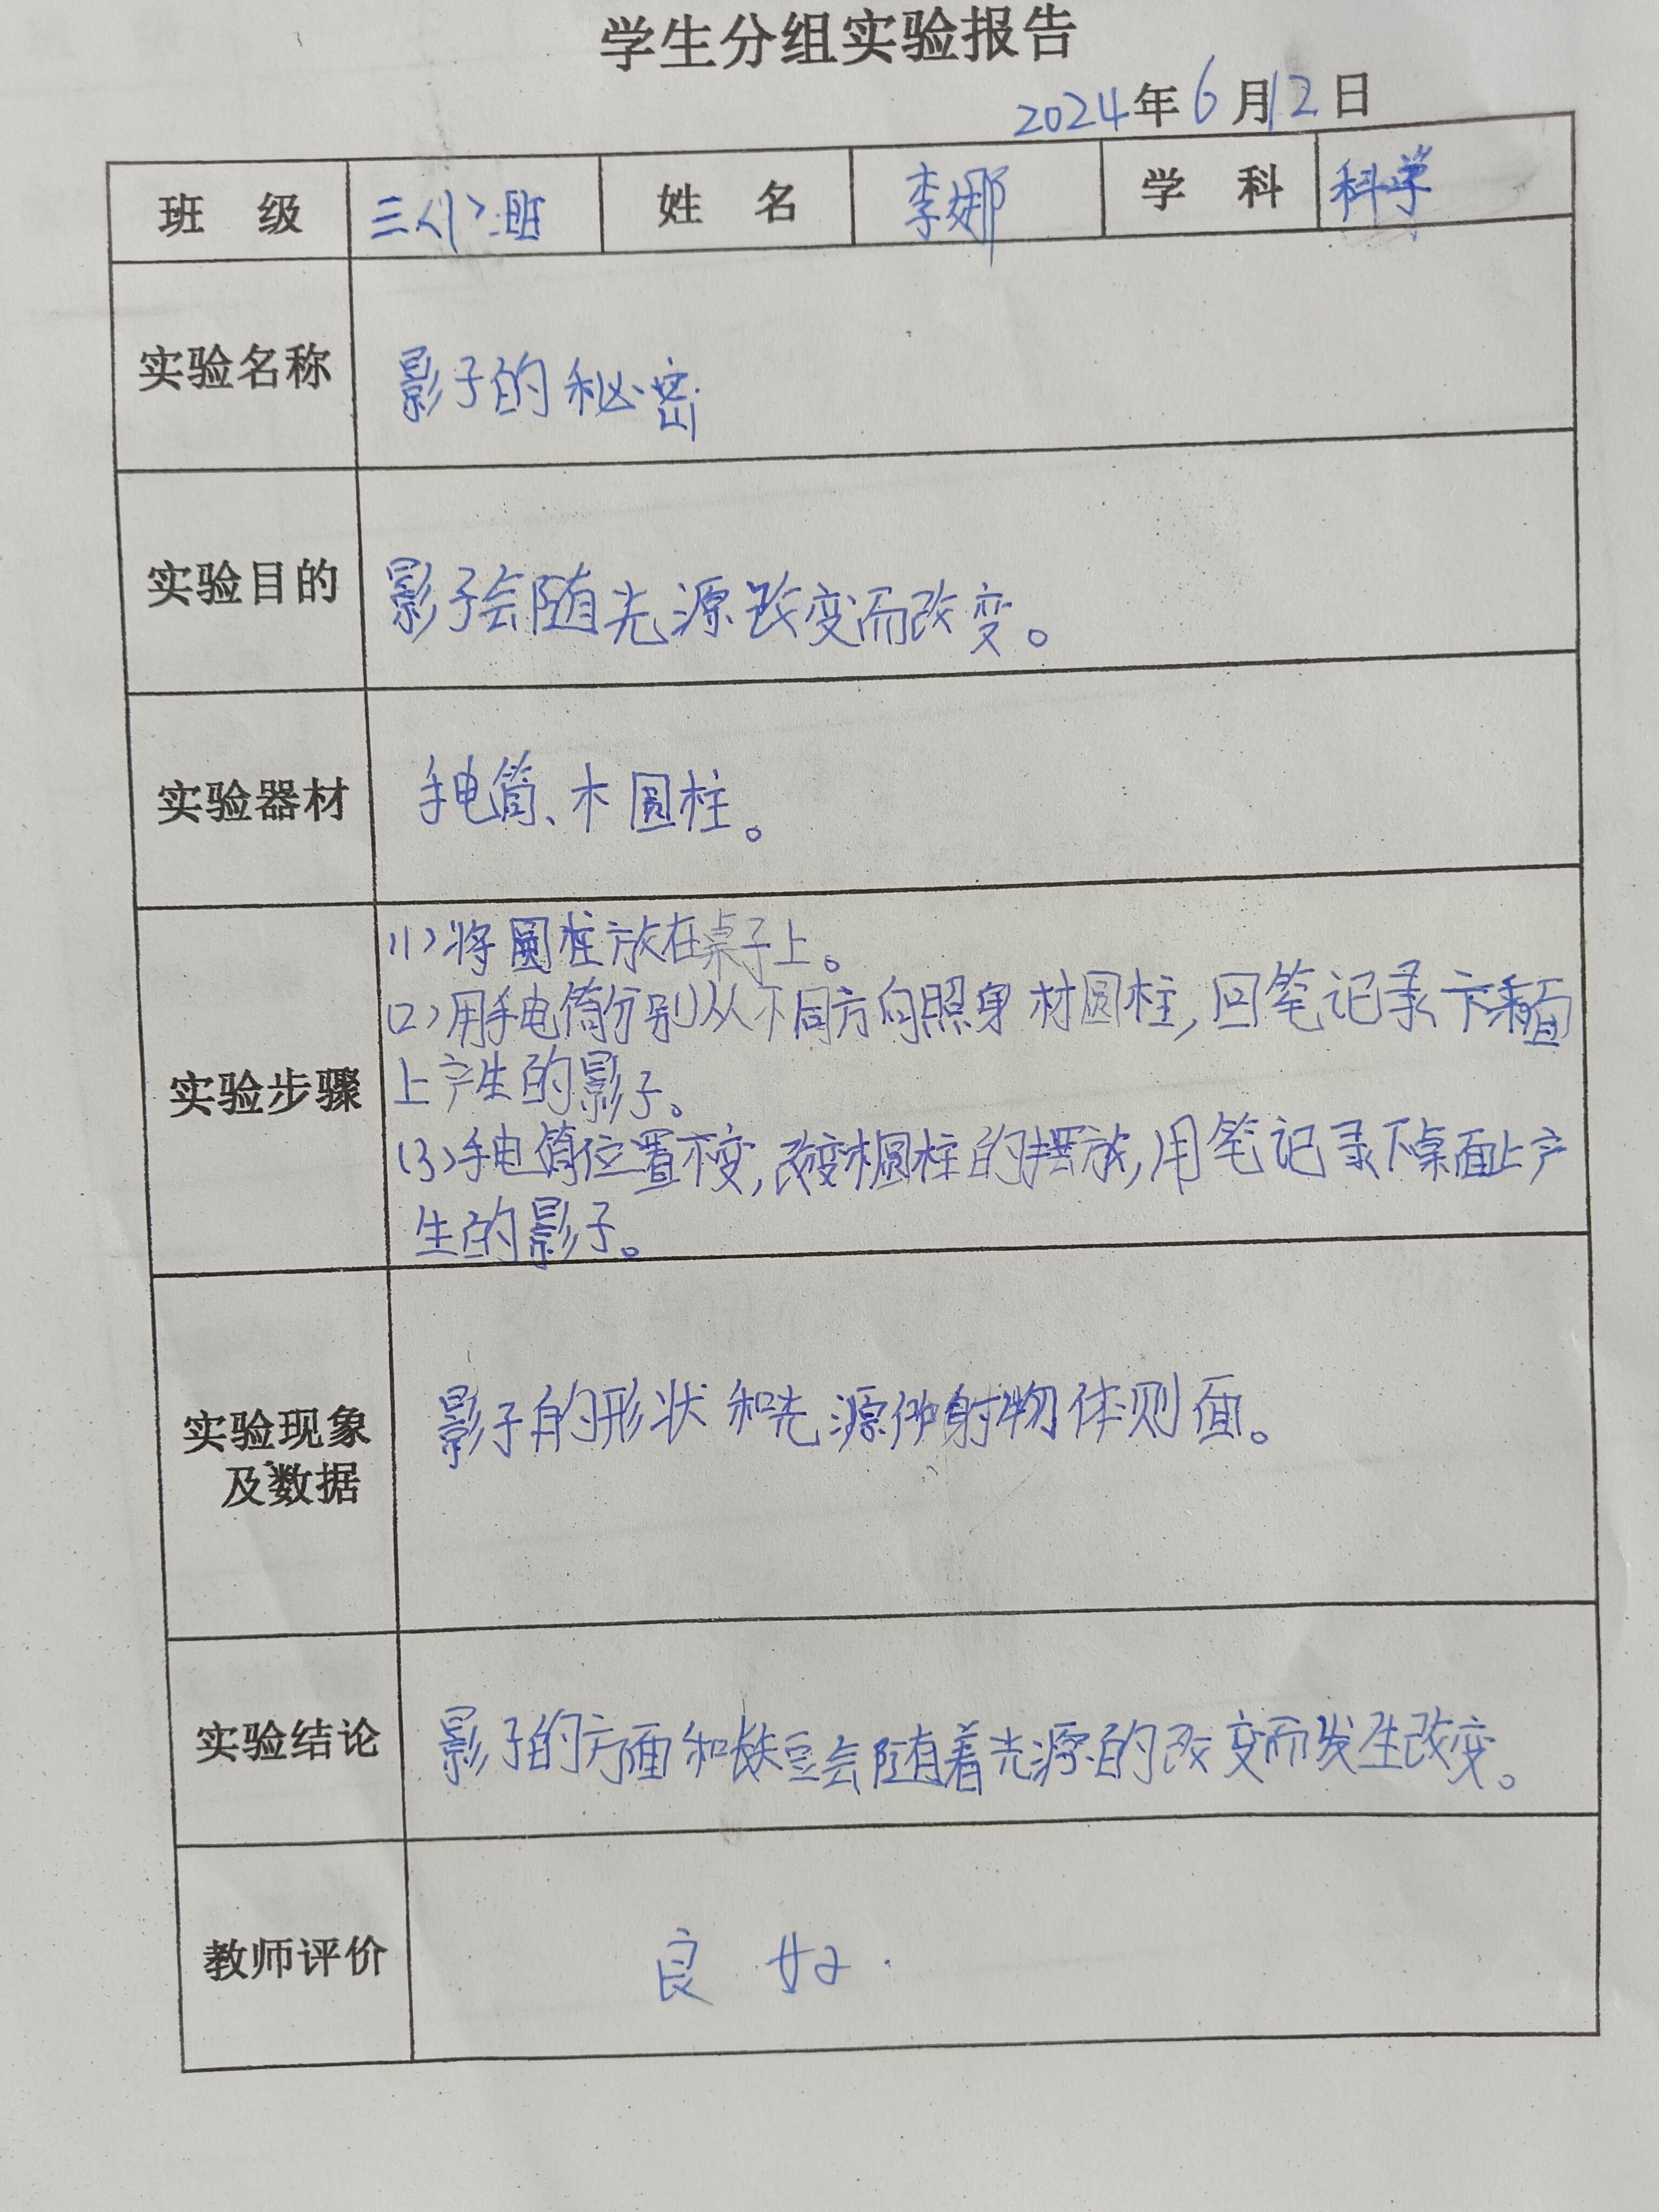 学生分组实验报告
2024年6月12日
班 级 三〈1〉班 姓 名 李娜 学 科 科学
实验名称 影子的秘密
实验目的 影子会随光源改变而改变。
实验器材 手电筒、木圆柱。
实验步骤
〈1〉将圆柱放在桌子上。
〈2〉用手电筒分别从不同方向照身材圆柱,回笔记录下桌面
上产生的影子。
〈3〉手电筒位置不变,改变木圆柱的摆放,用笔记录下桌面上产
生的影子。
实验现象
及数据
影子的形状和光源 射物体则面。
实验结论 影子的方面和 会随着光源的改变而发生改变。
教师评价 良好.